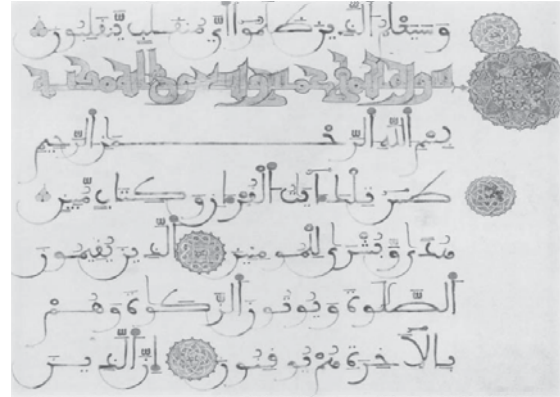 وسيعلم الذين ظلموا أي منقلب ينقلبون
سورة النمل
بسم الله الرحمن الرحيم
طس تلك ءايت القرءان وكتاب مبين
هدى وبشرى للمومنين الذين يقيمون
الصلوة ويوتون الزكوة وهم
بالاخرة هم يوقنون إن الذين